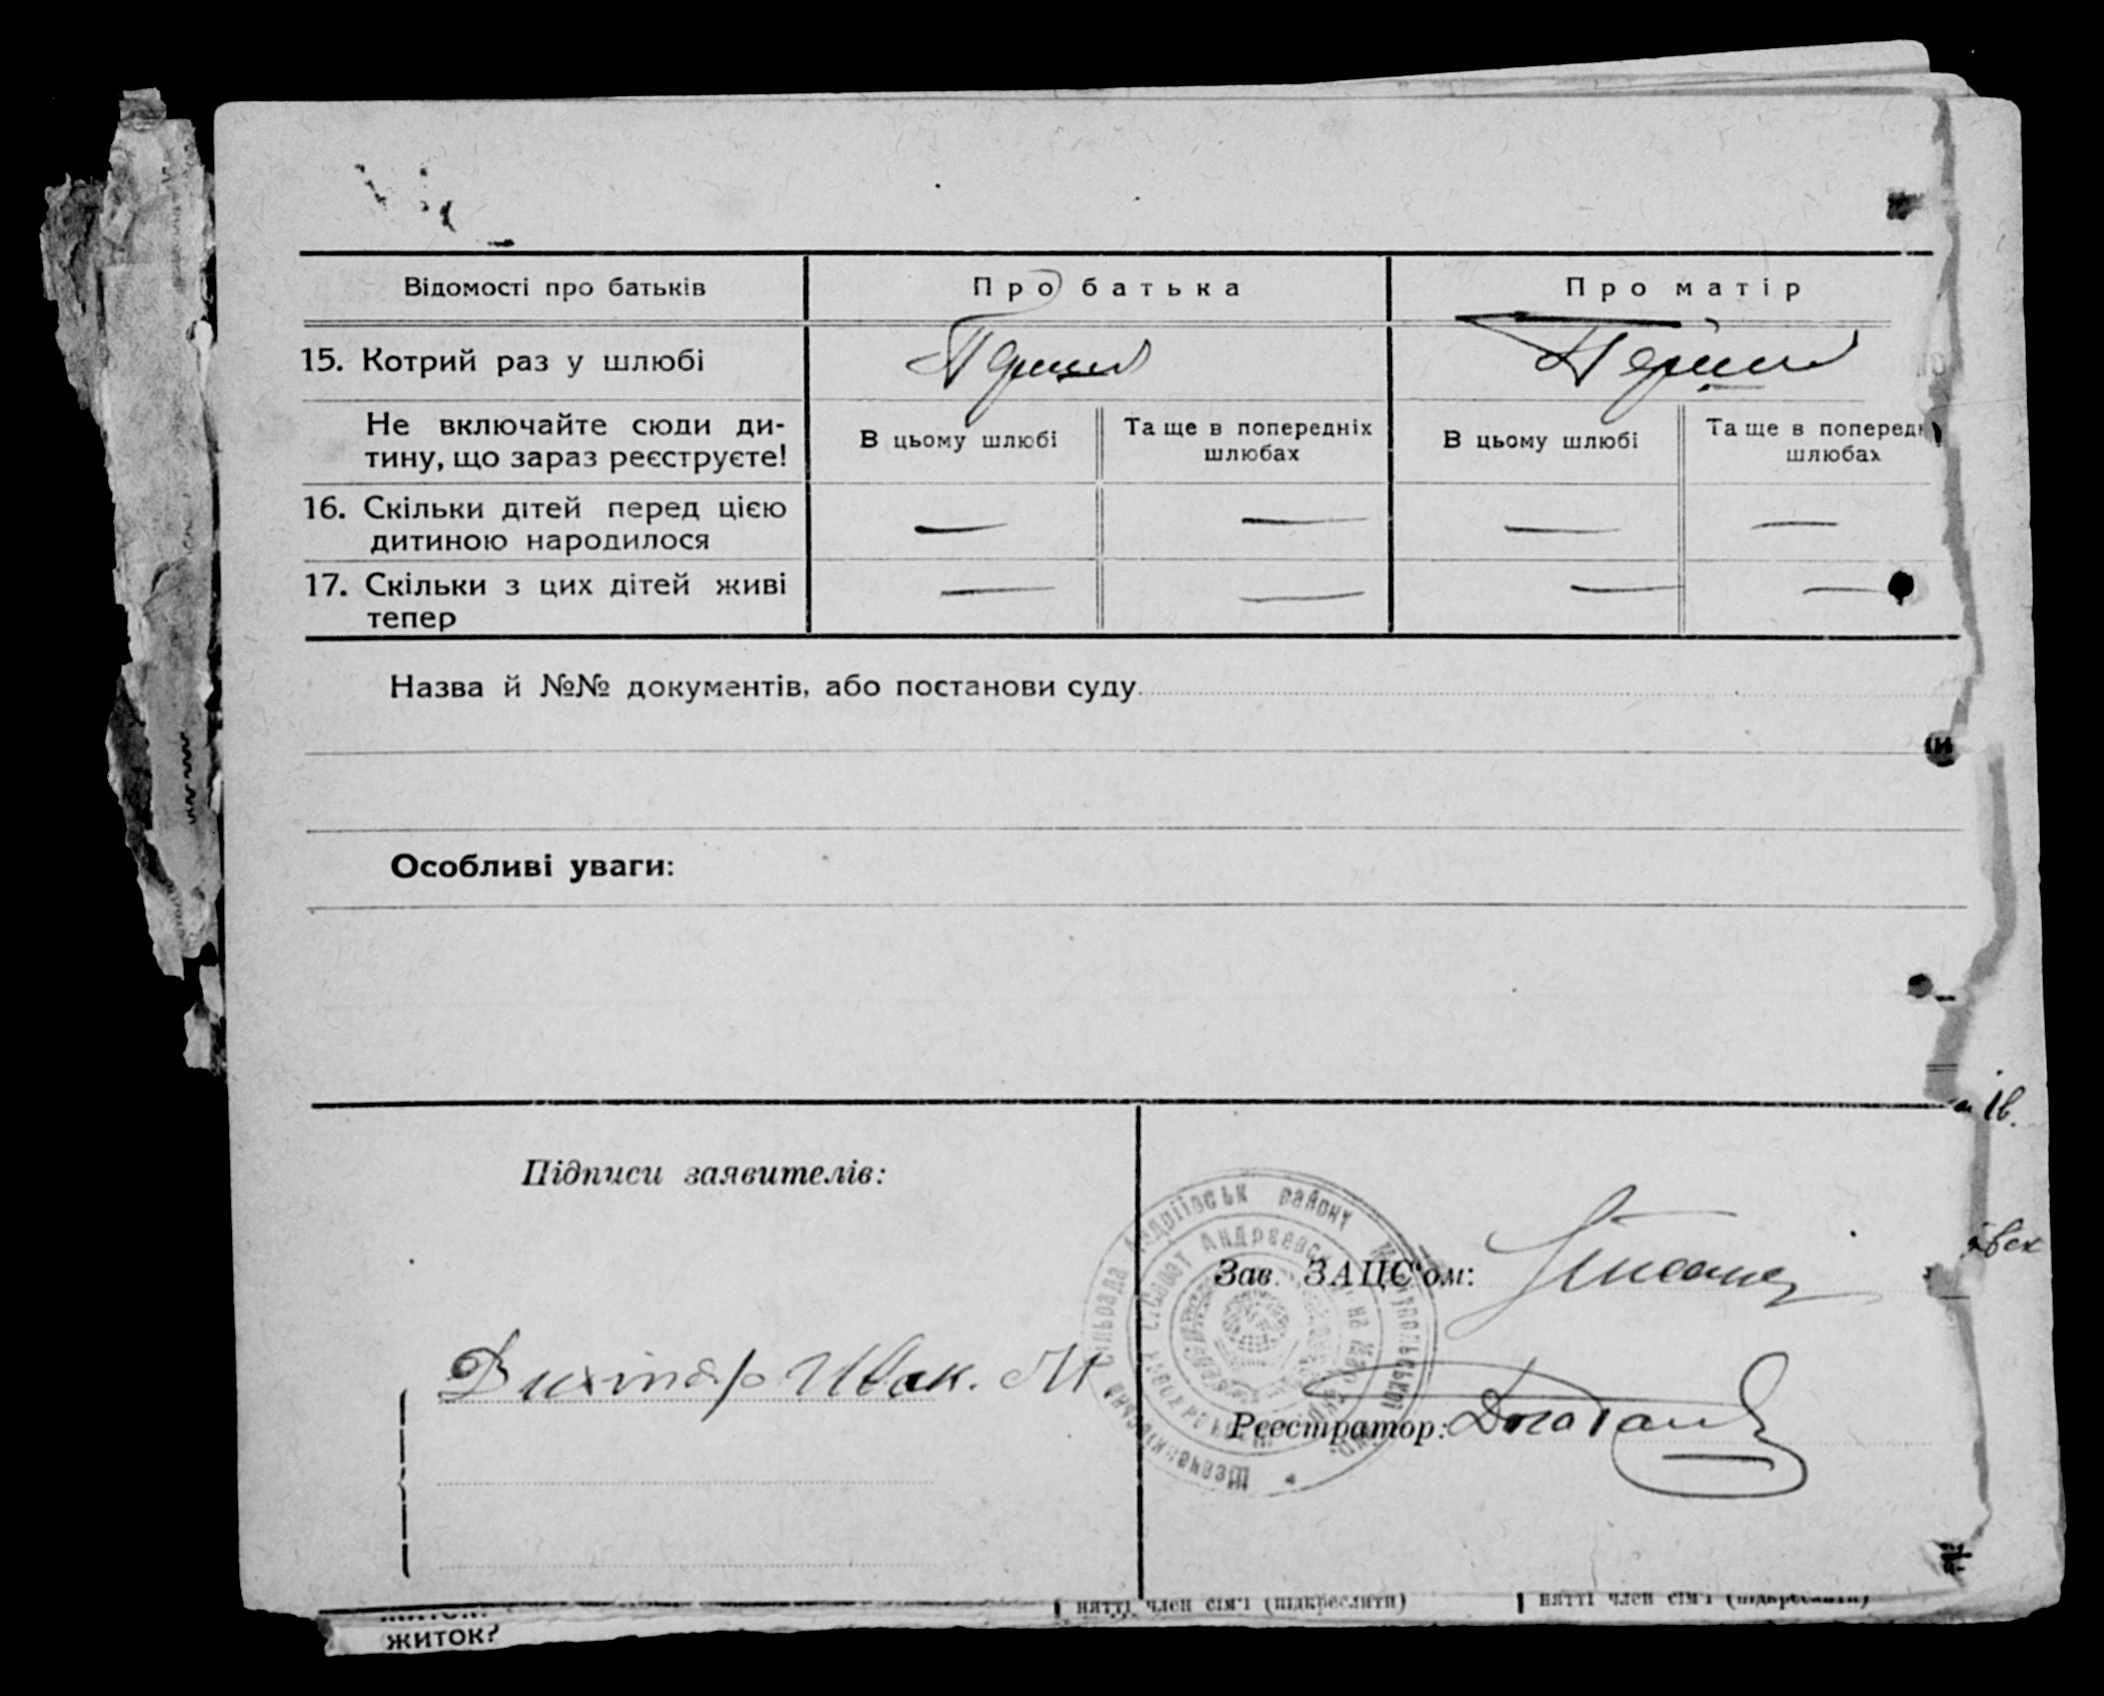 Відомості про батьків
Про батька
Про матір
15. Котрий раз у шлюбі
Перший
Перший
Не включайте сюди ди-
тину, що зараз реєструєте!
В цьому шлюбі
Та ще в попередніх
шлюбах
В цьому шлюбі
Та ще в поперед
шлюбах
16. Скільки дітей перед цією
дитиною народилося
— — — —
17. Скільки з цих дітей живі
тепер
— — — —
Назва й №№ документів, або постанови суду
Особливі уваги:
ів.
Підписи заявителів:
Зав. ЗАЦС'ом:
Реєстратор:
Андріївськ район
Андреевск
Шевченківська
нятті член сім'ї (підкреслити)
нятті член сім'ї (підкреслити)
житок?